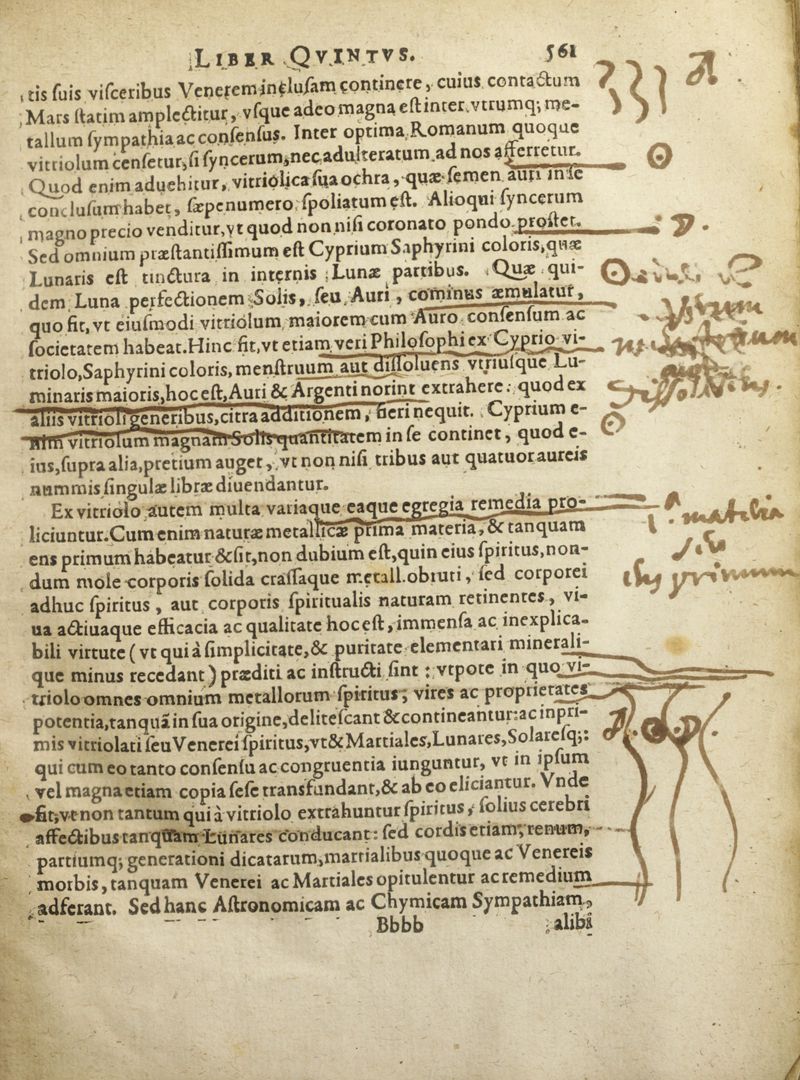 LIBER QVINTVS. 561
tis suis visceribus Venerem inclusam continere, cuius contactum
Mars statim amplectitur, vsque adeo magna est inter vtrumq; me-
tallum sympathia ac consensus. Inter optima Romanum quoque
vitriolum censetur, si syncerum, nec adulteratum ad nos afferretur.
Quod enim aduehitur, vitriolica sua ochra, quæ semen auri in se
conclusum habet, sæpenumero spoliatum est. Alioqui syncerum
magno precio venditur, vt quod non nisi coronato pondo prostet.
Sed omnium præstantissimum est Cyprium Saphyrini coloris, quæ
Lunaris est tinctura in internis Lunæ partibus. Quæ qui-
dem Luna perfectionem Solis, seu Auri, cominus æmulatur,
quo fit, vt eiusmodi vitriolum maiorem cum Auro consensum ac
societatem habeat. Hinc fit, vt etiam veri Philosophi ex Cyprio vi-
triolo, Saphyrini coloris, menstruum aut dissoluens vtriusque Lu-
minaris maioris, hoc est, Auri & Argenti norint extrahere: quod ex
aliis vitrioli generibus, citra additionem, fieri nequit. Cyprium e-
nim vitriolum magnam Solis quantitatem in se continet, quod e-
ius, supra alia, pretium auget, vt non nisi tribus aut quatuor aureis
nummis singulæ libræ diuendantur.
Ex vitriolo autem multa variaque eaque egregia remedia pro-
liciuntur. Cum enim naturæ metallicæ prima materia, & tanquam
ens primum habeatur & sit, non dubium est, quin eius spiritus, non-
dum mole corporis solida crassaque metall. obruti, sed corporei
adhuc spiritus, aut corporis spiritualis naturam retinentes, vi-
ua actiuaque efficacia ac qualitate hoc est, immensa ac inexplica-
bili virtute (vt qui à simplicitate, & puritate elementari minerali-
que minus recedant) præditi ac instructi sint: vtpote in quo vi-
triolo omnes omnium metallorum spiritus, vires ac proprietates
potentia, tanquã in sua origine, delitescant & contineantur: ac inpri-
mis vitriolati seu Venerei spiritus, vt & Martiales, Lunares, Solaresq;:
qui cum eo tanto consensu ac congruentia iunguntur, vt in ipsum
vel magna etiam copia sese transfundant, & ab eo eliciantur. Vnde
fit, vt non tantum qui à vitriolo extrahuntur spiritus, solius cerebri
affectibus tanquam Lunares conducant: sed cordis etiam, renum,
partiumq; generationi dicatarum, martialibus quoque ac Venereis
morbis, tanquam Venerei ac Martiales opitulentur ac remedium
adferant. Sed hanc Astronomicam ac Chymicam Sympathiam,
Bbbb alibi
♂
☉
☉
☉
materia
primum
♂ ☉